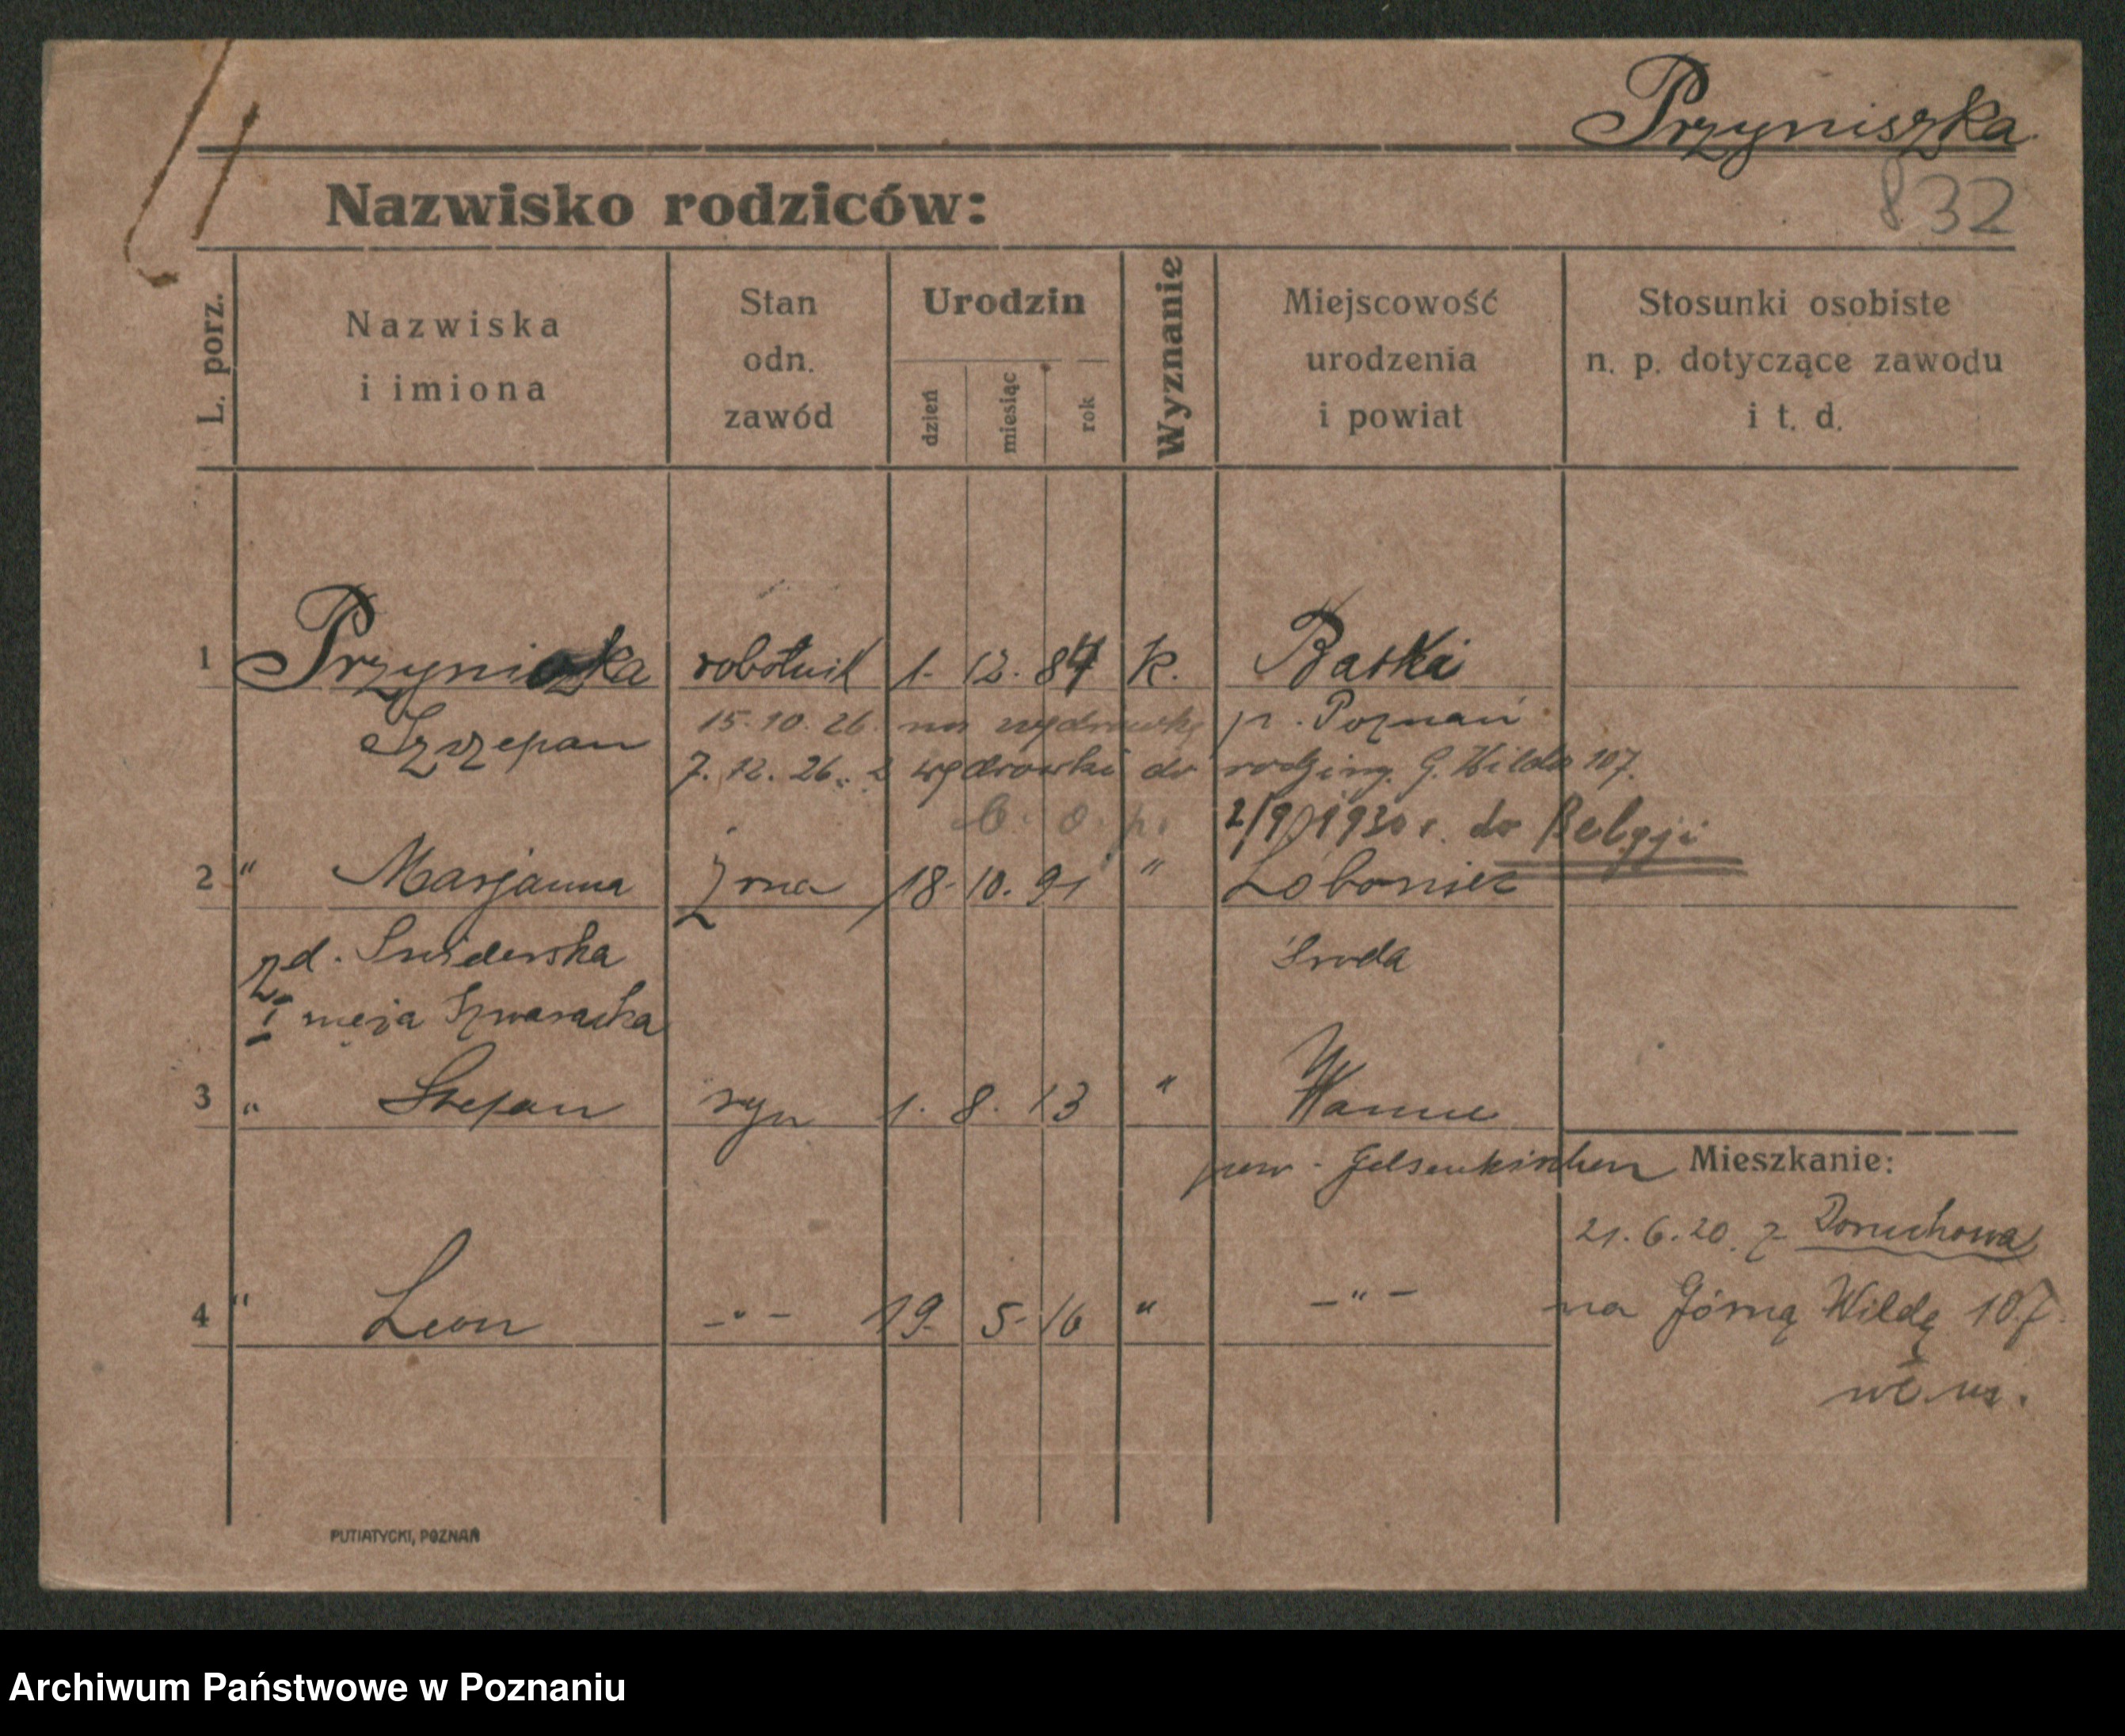 Przyniszka
832
Nazwisko rodziców:
L. porz.
Nazwiska
i imiona
Stan
odn.
zawód
Urodzin
dzień
miesiąc
rok
Wyznanie
Miejscowość
urodzenia
i powiat
Stosunki osobiste
n. p. dotyczące zawodu
i t. d.
1 Przyniszka robotnik 1. 12. 84 K. Batki
Szczepan 15.10.26. na wędrówkę p. Poznań
7.12.26. z wędrówki do rodziny. G. Wilda 107.
b. o. p. 2/9 1930 r. do Belgji
2 " Marjanna żona 18. 10. 91 "
zd. Świderska Środa
I męża
3 " Stefan syn 1. 8. 13 " Wanne
pow. Gelsenkirchen
Mieszkanie:
21.6.20. z Doruchowa
4 " Leon -"- 19. 5. 16 " -"- na Górną Wildę 107.
PUTIATYCKI, POZNAŃ
Archiwum Państwowe w Poznaniu